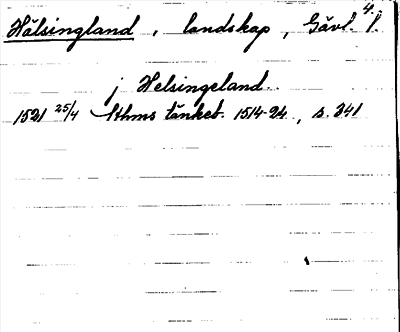 4.
Hälsingland, landskap, Gävl. l.
j Helsingeland
1521 25/4 Sthms tänkeb. 1514-24, s. 341